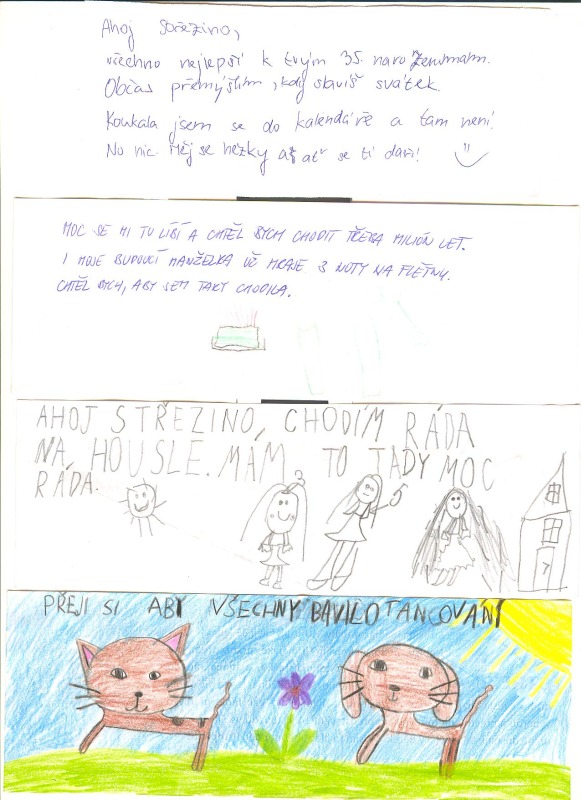 Ahoj Střezino,
všechno nejlepší k tvým 35. narozeninám.
Občas přemýšlím, kdy slavíš svátek.
Koukala jsem se do kalendáře a tam není!
No nic. Měj se hezky a ať se ti daří!
MOC SE MI TU LÍBÍ A CHTĚL BYCH CHODIT TŘEBA MILIÓN LET.
I MOJE BUDOUCÍ MANŽELKA UŽ HRAJE 3 NOTY NA FLÉTNU.
CHTĚL BYCH, ABY SEM TAKY CHODILA.
AHOJ STŘEZINO, CHODÍM RÁDA
NA HOUSLE. MÁM TO TADY MOC
RÁDA.
PŘEJI SI ABY VŠECHNY BAVILO TANCOVÁNÍ